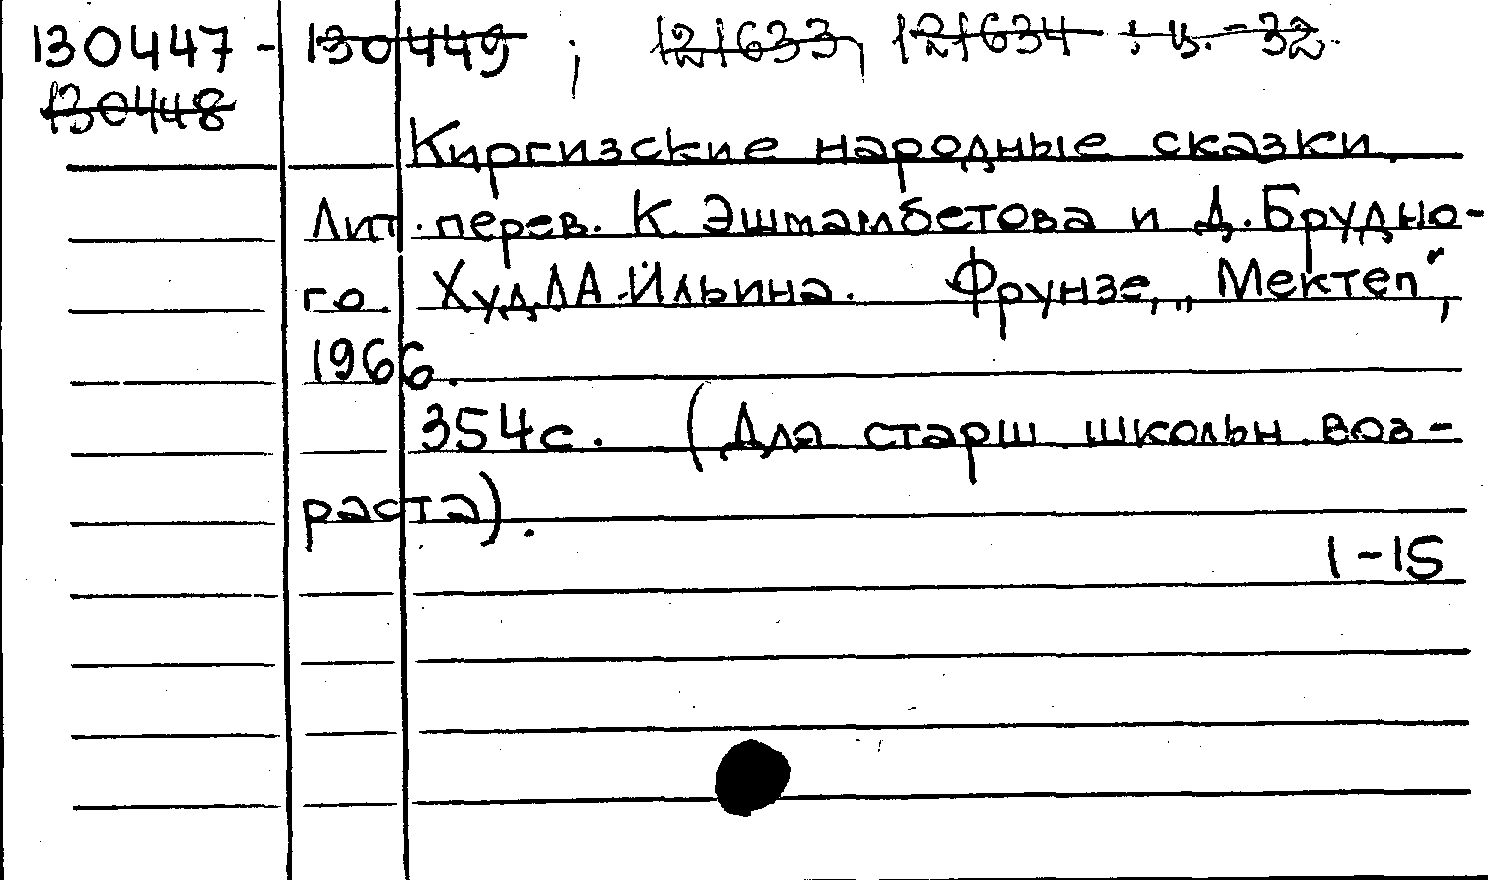 130447- 130449 ; 121633, 121634 ; ц.-32.
130448
Киргизские народные сказки.
Лит. перев. К. Эштамбетова и Д. Брудно-
го. Худ. А. Ильина. Фрунзе, „Мектеп",
1966.
354с. (Для старш школьн. воз-
раста).
1-15